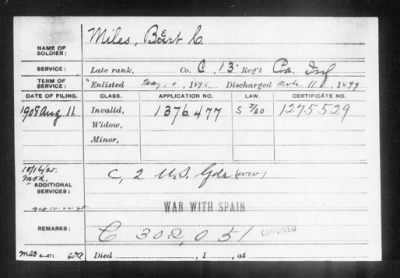 NAME OF SOLDIER: Miles, Bert C.
SERVICE: Late rank, Co. C, 13 Reg't Inf
TERM OF SERVICE: Enlisted , 189 Discharged 11, 1899
DATE OF FILING. CLASS. APPLICATION NO. LAW. CERTIFICATE NO.
1908 Aug 11 Invalid, 1376477 1275529
Widow,
Minor,
ADDITIONAL SERVICES: C, 2 U.S. Gds (WW)
WAR WITH SPAIN
REMARKS: C 302,051
Died , 1 , at